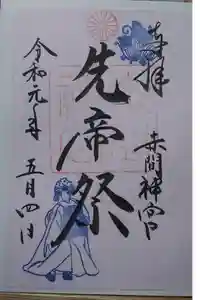 奉拝
赤間神宮
先帝祭
令和元年 五月四日